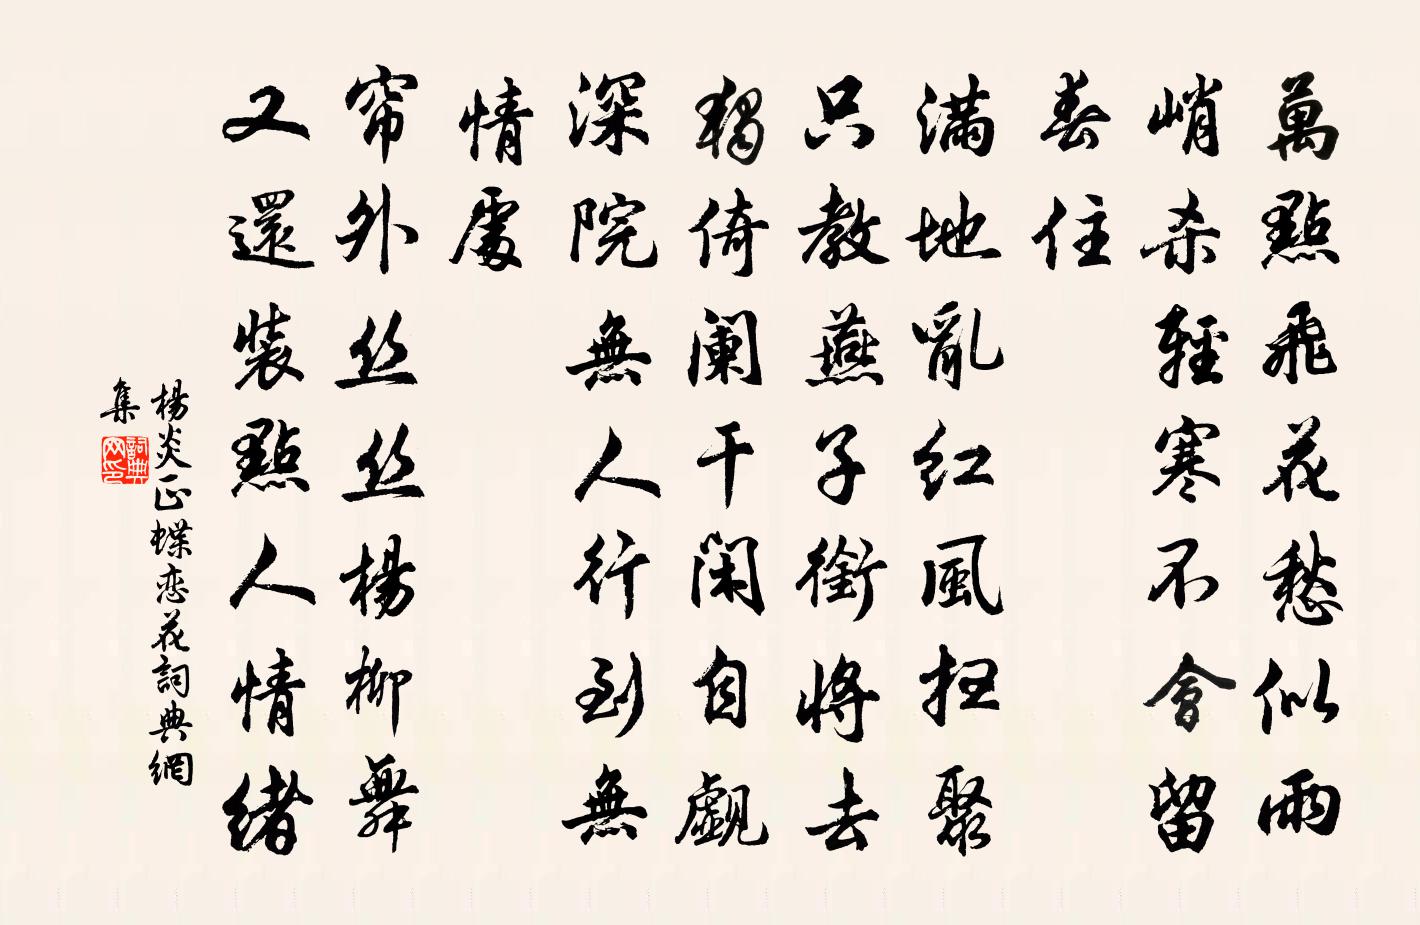 萬點飛花愁似雨
峭杀輕寒不會留
春住
滿地亂红風扫聚
只教燕子銜將去
獨倚阑干闲自觑
深院無人行到無
情處
帘外丝丝楊柳舞
又還裝點人情緒
楊炎正蝶恋花詞典網
集
詞典
网